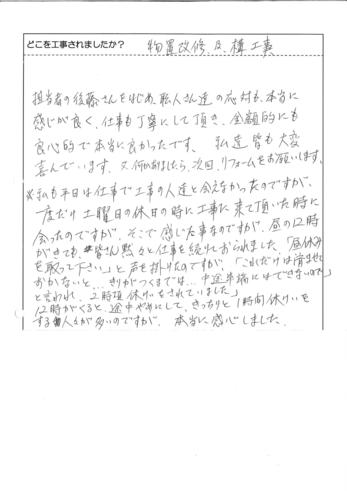 どこを工事されましたか？ 物置改修及、樋工事
担当者の後藤さんをはじめ、職人さん達の応対も、本当に
感じが良く、仕事も丁寧にして頂き、金額的にも
良心的で本当に良かったです。 私達皆も大変
喜んでいます。又何かありましたら、次回、リフォームをお願いします。
※私も平日は仕事で工事の人達と会えなかったのですが、
一度だけ土曜日の休日の時に工事に来て頂いた時に
会ったのですが、そこで感じた事なのですが、昼の12時
がきても、皆さん黙々と仕事を続けておられました「昼休み
を取って下さい」と声を掛けたのですが、「これだけは済ませて
おかないと…きりがつくまでは…中途半端にはできないので」
と言われ、2時頃休けいをされていました」
12時がくると、途中でやめにして、きっちりと1時間休けいを
する人々が多いのですが、本当に感心しました。